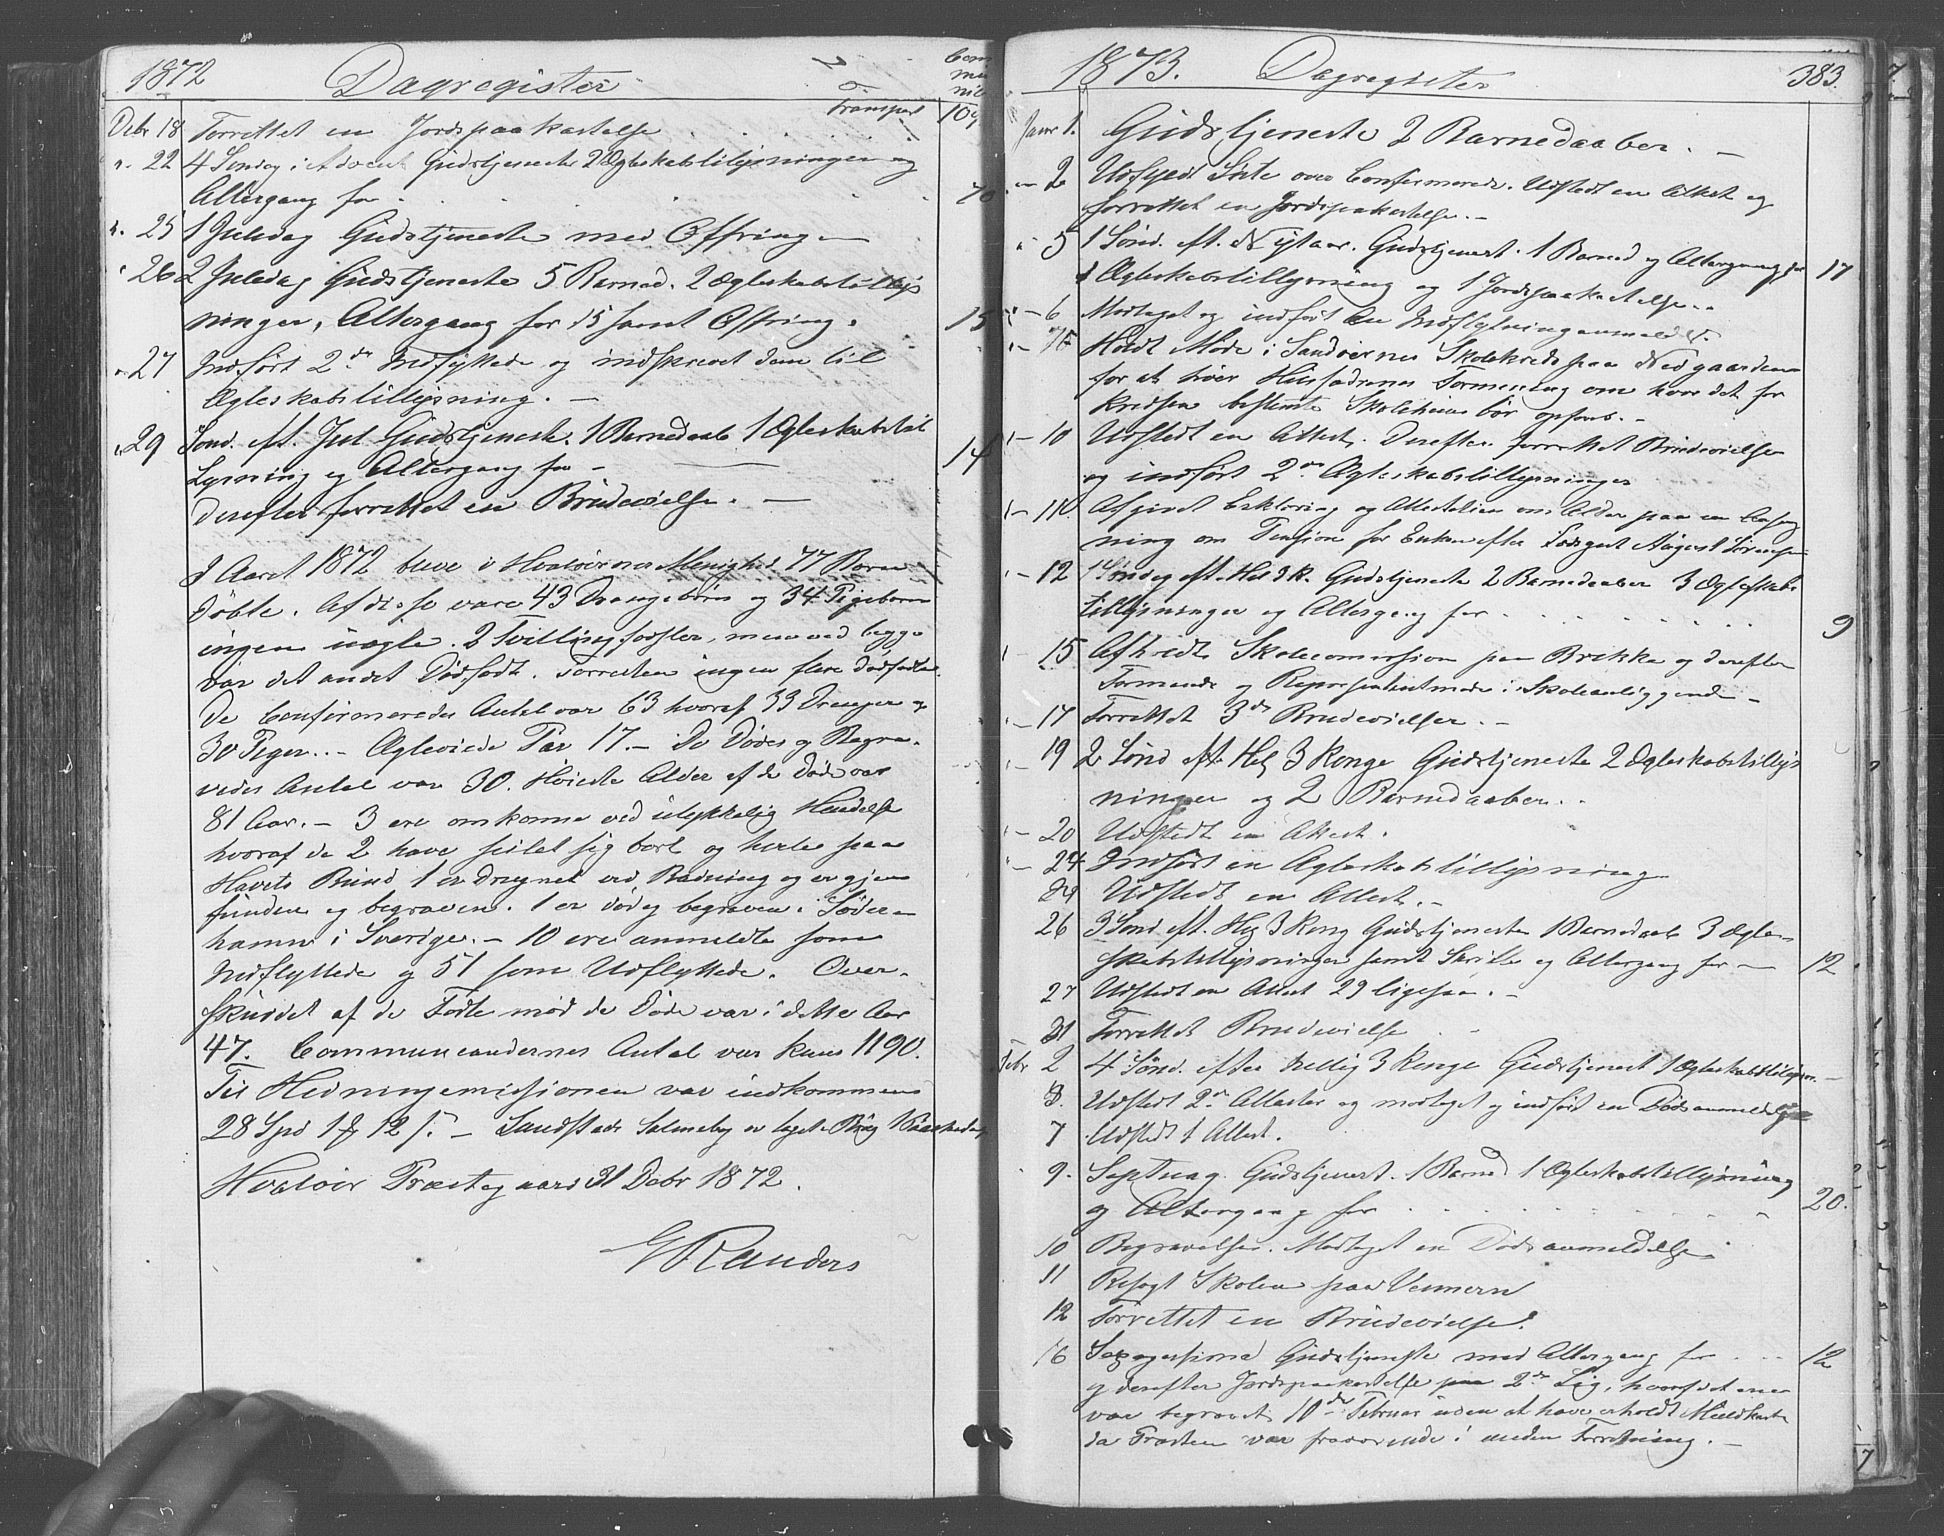 1872 Dagregister
Com
mu
nik
Transport 109
Debr 18 Forrettet en Jordspaakastelse
" 22 4 Søndag i Advent Gudstjeneste 2 Ægteskabstillysninger og
Altergang for 70
" 25 1 Juledag Gudstjeneste med Offring
" 26 2 Juledag Gudstjeneste 5 Barned. 2 Ægteskabstillys
ninger, Altergang for 15 samt Offring. 15
" 27 Indført 2de Indflyttede og indskrevet dem til
Ægteskabstillysning. —
" 29 Sønd. eft. Jul Gudstjeneste. 1 Barnedaab 1 Ægteskabstil
lysning og Altergang for — 14
Derefter forrettet en Brudevielse. —
I Aaret 1872 bleve i Hvaløernes Menighed 77 Børn
døbte. Af disse vare 43 Drengebørn og 34 Pigebørn
ingen uægte. 2 Tvillingfødsler, men ved begge
var det andet Dødfødt. Forresten ingen flere dødfødte
De Confirmeredes Antal var 63 hvoraf 33 Drenger og
30 Piger. — Ægteviede Par 17. — De Dødes og Begra-
vedes Antal var 30. Høieste Alder af de Døde var
81 Aar. — 3 ere omkomne ved ulykkelig Hændelse
hvoraf de 2 have seilet sig bort og hvile paa
Havets Bund 1 er druknet ved Badning og er gjen
funden og begraven. 1 er død og begraven i Söder-
hamn i Sverige. — 10 ere anmeldte som
Indflyttede og 51 som Udflyttede. Over-
skuddet af de Fødte mod de Døde var i dette Aar
47. Communicandernes Antal var kuns 1190.
Til Hedningemissionen var indkommen
28 Spd 1 12 s. — Landstads Salmebog er taget i Brug
Hvaløer Præstegaard 31 Debr 1872.
G Randers
1873. Dagregister 383.
Janr 1. Gudstjeneste 2 Barnedaaber. —
— 2 Udfyldt Liste over Confirmerede. Udstedt en Attest og
forrettet en Jordspaakastelse. —
" 5 1 Sønd. eft. Nytaar. Gudstjenest. 1 Barned og Altergang for 17
1 Ægteskabstillysning og 1 Jordspaakastelse.
— 6 Modtaget og indført en Indflytningsanmeldelse.
Holdt Møde i Sandøernes Skolekreds paa Nedgaarden
for at høre Husfædrenes Formening om hvor det for
Kredsen bestemte Skolehuus bør opføres. —
— 10 Udstedt en Attest. Derefter forrettet Brudevielse
og indført 2de Ægteskabstillysninger
— 11. Afgivet Erklæring og Attestation om Alder paa en Ansøg
ning om Pension for Enken efter Lodsgut August Sørensen
— 12 1 Søndag eft. Hel 3 K. Gudstjeneste 2 Barnedaaber 3 Ægteskabs
tillysninger og Altergang for 9
— 15 Afholdt Skolecomission paa Brekke og derefter
Formænds og Repræsentantmøde i Skoleanliggender —
— 17 Forrettet 3de Brudevielser. —
19 2 Sønd eft. Hel 3 Konge Gudstjeneste 2 Ægteskabstillys
ninger og 2 Barnedaaber.
— 20 Udstedt en Attest.
— 24 Indført en Ægteskabstillysning
24 Udstedt en Attest. —
26 3 Sønd. eft. Hel 3 Kong Gudstjeneste 1 Barnedaab 3 Ægte-
skabstillysninger samt Skrifte og Altergang for — 12
27 Udstedt en Attest 29 ligesaa. —
31 Forrettet Brudevielse
Febr 2 4 Sønd. efter Hellig 3 Konge Gudstjenest 1 Ægteskabstillysn.
3. Udstedt 2de Attester og modtaget og indført en Dødsanmeldelse
7 Udstedt 1 Attest.
9. Septuag. Gudstjenest. 1 Barned 1 Ægteskabstillysning
og Altergang for 20.
10 Begravelse. Modtaget en Dødsanmeldelse
11 Besøgt Skolen paa Vennern
12 Forrettet en Brudevielse.
16 Sexagessima Gudstjeneste med Altergang for 12
og derefter Jordspaakastelse paa 2de Lig, hvoraf det ene
var begravet 10de Februar uden at have erholdt Muldkast
da Præsten var fraværende i anden Forretning. —